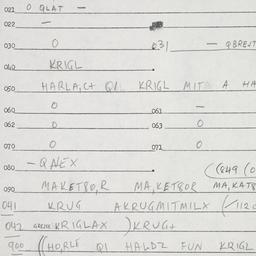 021 0 QLAT —
022 —
030 0 031 — QBREJT
040 KRIGL
050 HARLAIC+ QI KRIGL MIT A HA
060 0 061 —
062 0 063 0
070 0 072 0
080 — QALEX ((849 (0
090 MAKET8O,R MA,KET8OR MA,KAT8
041 KRUG AKRUGMITMILX (/112 0
042 KRIGLAX )KRUG+
900 ((HORLE QI HALDZ FUN KRIGL